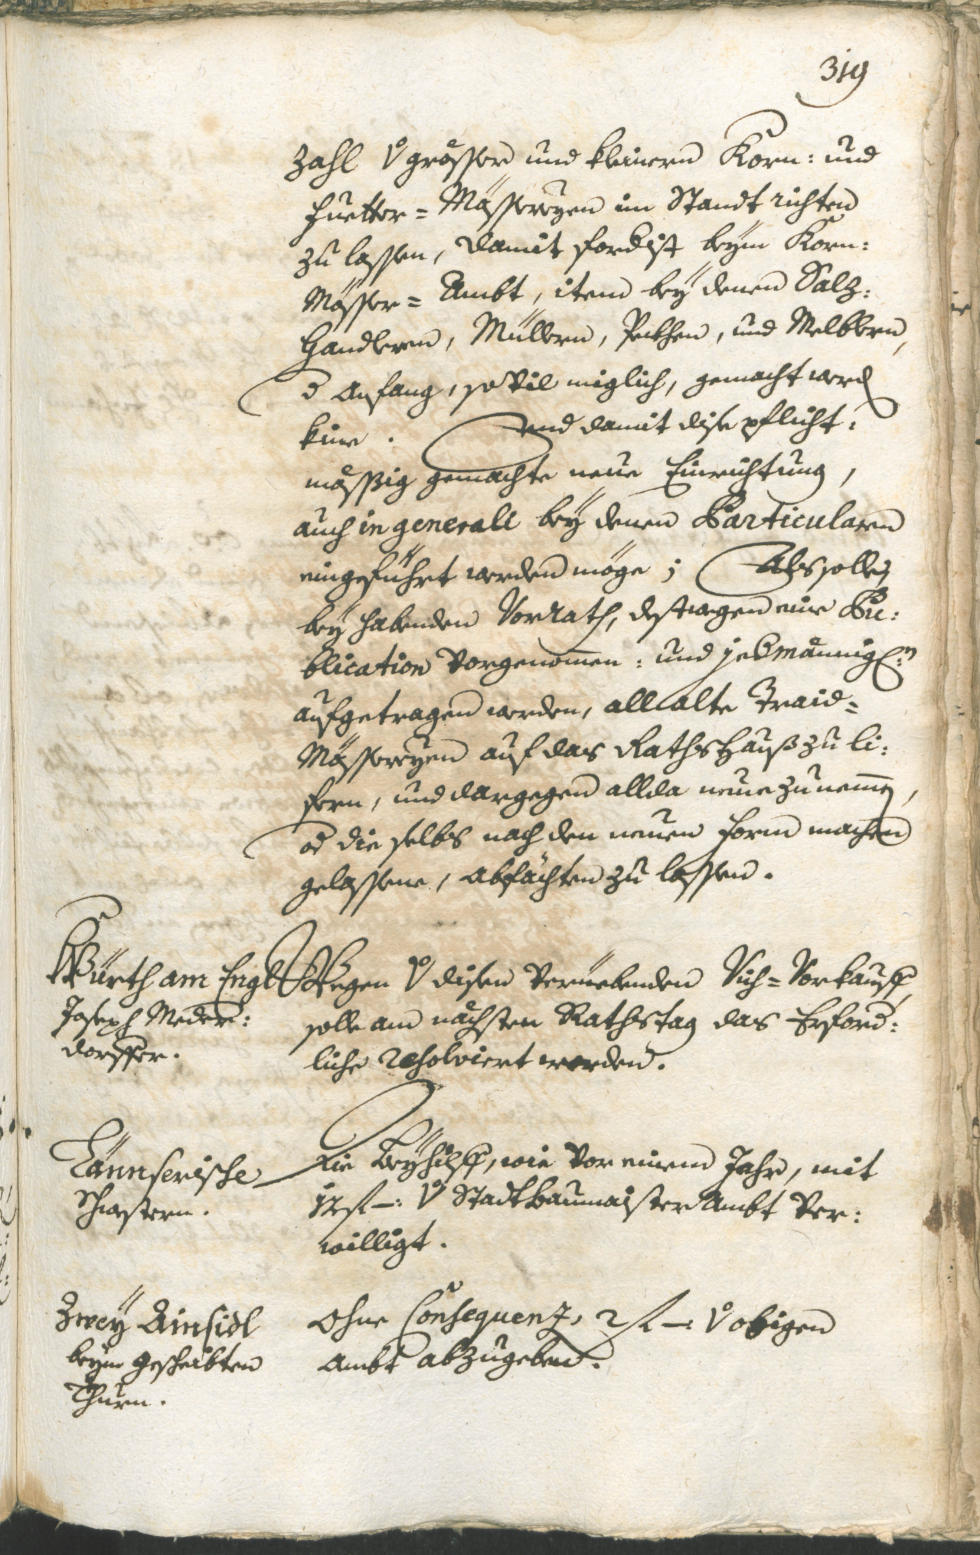 319
zahl v grösser und kleinern Korn: und
Fuetter= Mässereyen im Standt richten
zu lassen, damit fordist beym Korn:
Mässer= Ambt, item bey denen Salz:
Handlern, Müllern, Pekhen, und Melblern,
d Anfang, so vil miglich, gemacht werd
kine. Und damit dise pflicht:
mässig gemachte neue Einrichtung,
auch in generali bey denen Particularn
eingeführt werden möge; Alss solle,
bey habenden Vorrath, destwegen eine Pu:
blication vorgenomen: und jedmännigl:n
aufgetragen werden, all alte Traid=
Mässereyen auf das Rathshauss zu li:
fern, und dargegen allda neue zu nemen,
od die selbs nach den neuen Form machen
gelassene, abfächten zu lassen.
Würth am Engl
Joseph Meder:
dorffer.
Wegen v disen veruebenden Vich= Vorkauff,
solle am nächsten Rathstag das Erford:
liche resolviert werden.
Tännserische
Schwestern.
Die Beyhilff, wie vor einem Jahr, mit
12 fl –: v Stadtbaumaister Ambt ver:
willigt.
Zwey Ainsidl
beym gescheibten
Thurn.
Ohne Consequenz, 2 fl –: v obigen
Ambt abzugeben.